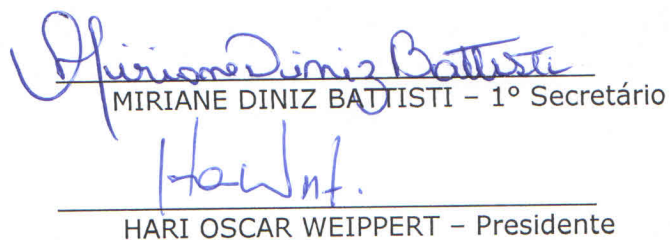 Miriane Diniz Battisti
MIRIANE DINIZ BATTISTI – 1º Secretário
HARI OSCAR WEIPPERT – Presidente